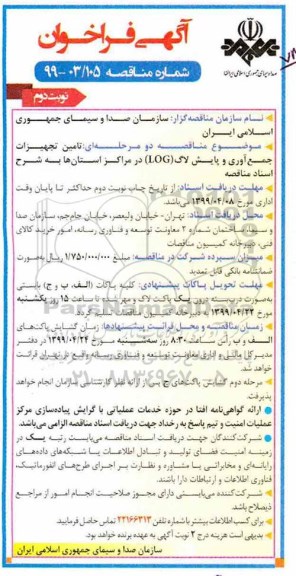 آگهی فراخوان
صدا و سیمای جمهوری اسلامی ایران
شماره مناقصه ۰۳/۱۰۵-۹۹
نوبت دوم
نام سازمان مناقصه گزار: سازمان صدا و سیمای جمهوری
اسلامی ایران
موضوع مناقصه دو مرحله‌ای: تامین تجهیزات
جمع آوری و پایش لاگ (LOG) در مراکز استان‌ها به شرح
اسناد مناقصه
مهلت دریافت اسناد: از تاریخ چاپ نوبت دوم حداکثر تا پایان وقت
اداری مورخ ۱۳۹۹/۰۴/۰۸ می‌باشد.
محل دریافت اسناد: تهران - خیابان ولیعصر، خیابان جام‌جم، سازمان صدا
و سیما، ساختمان شماره ۲ معاونت توسعه و فناوری رسانه، امور خرید کالای
فنی، دبیرخانه کمیسیون مناقصات
میزان سپرده شرکت در مناقصه: مبلغ ۱/۷۵۰/۰۰۰/۰۰۰ ریال به صورت
ضمانتنامه بانکی قابل تمدید
مهلت تحویل پاکات پیشنهادی: کلیه پاکات (الف، ب و ج) بایستی
به صورت دربسته درون یک پاکت لاک و مهر شده تا ساعت ۱۵ روز یکشنبه
مورخ ۱۳۹۹/۰۴/۲۲ به دبیرخانه کمیسیون مناقصات تحویل گردد.
زمان مناقصه و محل قرائت پیشنهادها: زمان گشایش پاکت‌های
الف و ب رأس ساعت ۸:۳۰ روز سه‌شنبه مورخ ۱۳۹۹/۰۴/۲۴ در دفتر
مدیرکل مالی و اداری معاونت توسعه و فناوری رسانه واقع در تهران قرائت
خواهد شد.
مرحله دوم گشایش پاکت‌های ج پس از ارائه نظر کارشناسی سازمان انجام خواهد
پذیرفت.
ارائه گواهی‌نامه افتا در حوزه خدمات عملیاتی با گرایش پیاده‌سازی مرکز
عملیات امنیت و تیم پاسخ به رخداد جهت دریافت اسناد مناقصه الزامی می‌باشد.
شرکت کنندگان جهت دریافت اسناد مناقصه می‌بایست رتبه یک در
زمینه امنیت فضای تولید و تبادل اطلاعات یا شبکه‌های داده‌های
رایانه‌ای و مخابراتی یا مشاوره و نظارت بر اجرای طرح‌های انفورماتیک،
فناوری اطلاعات و ارتباطات دارا باشند.
شرکت کننده می‌بایستی دارای مجوز صلاحیت انجام امور از مراجع
ذیصلاح باشد.
برای کسب اطلاعات بیشتر با شماره تلفن ۲۲۱۶۶۳۱۳ تماس حاصل فرمایید.
بدیهی است هزینه درج ۲ نوبت آگهی به عهده برنده خواهد بود.
سازمان صدا و سیمای جمهوری اسلامی ایران
ParsNamadData
۰۲۱-۸۸۳۴۹۶۷۰-۵